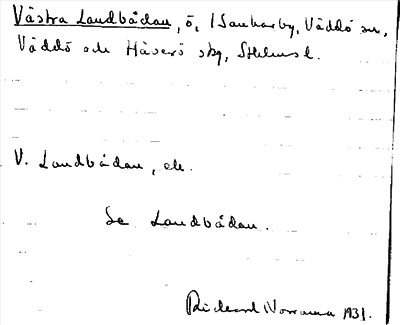 Västra Landbådan, ö, i Sankarby, Väddö sn,
Väddö och Häverö skg, Sthlms l.
V. Landbådan, ek.
Se Landbådan.
Rickard Norrman 1931.